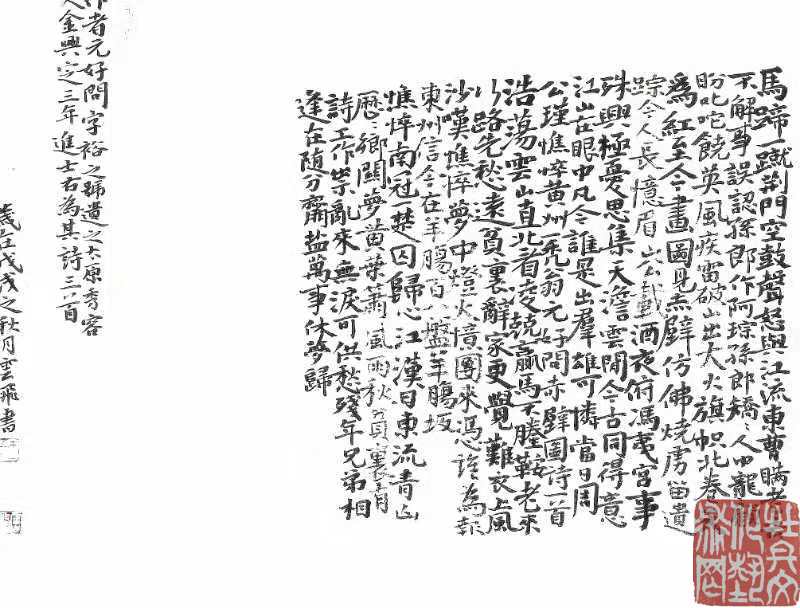 馬蹄一蹴荊門空鼓聲怒與江流東曹瞞老去
不解事誤認孫郎作阿琮孫郎矯〻人中龍顧
盼叱咤饒英風疾雷破山出大火旗幟北卷天
為紅至今畫圖見赤壁仿佛燒虜留遺
踪令人長憶眉山公載酒夜俯馮夷宮事
殊興極憂思集天澹雲閒今古同得意
江山在眼中凡今誰是出羣雄可憐當日周
公瑾憔悴黃州一禿翁元好問赤壁圖詩一首
浩蕩雲山直北看凌兢羸馬不勝鞍老來
行路先愁遠貧裏辭家更覺難衣上風
沙嘆憔悴夢中燈火憶團來憑誰為報
東州信今在羊腸百八盤羊腸坂
憔悴南冠一楚囚歸心江漢日東流青山
歷〻鄉關夢黃葉蕭〻風雨秋貧裏有
詩工作祟亂來無淚可供愁殘年兄弟相
逢在隨分齋鹽萬事休夢歸
作者元好問字裕之號遺之太原秀容
人金興定三年進士右為其詩三首
歲在戊戌之秋月雲飛書